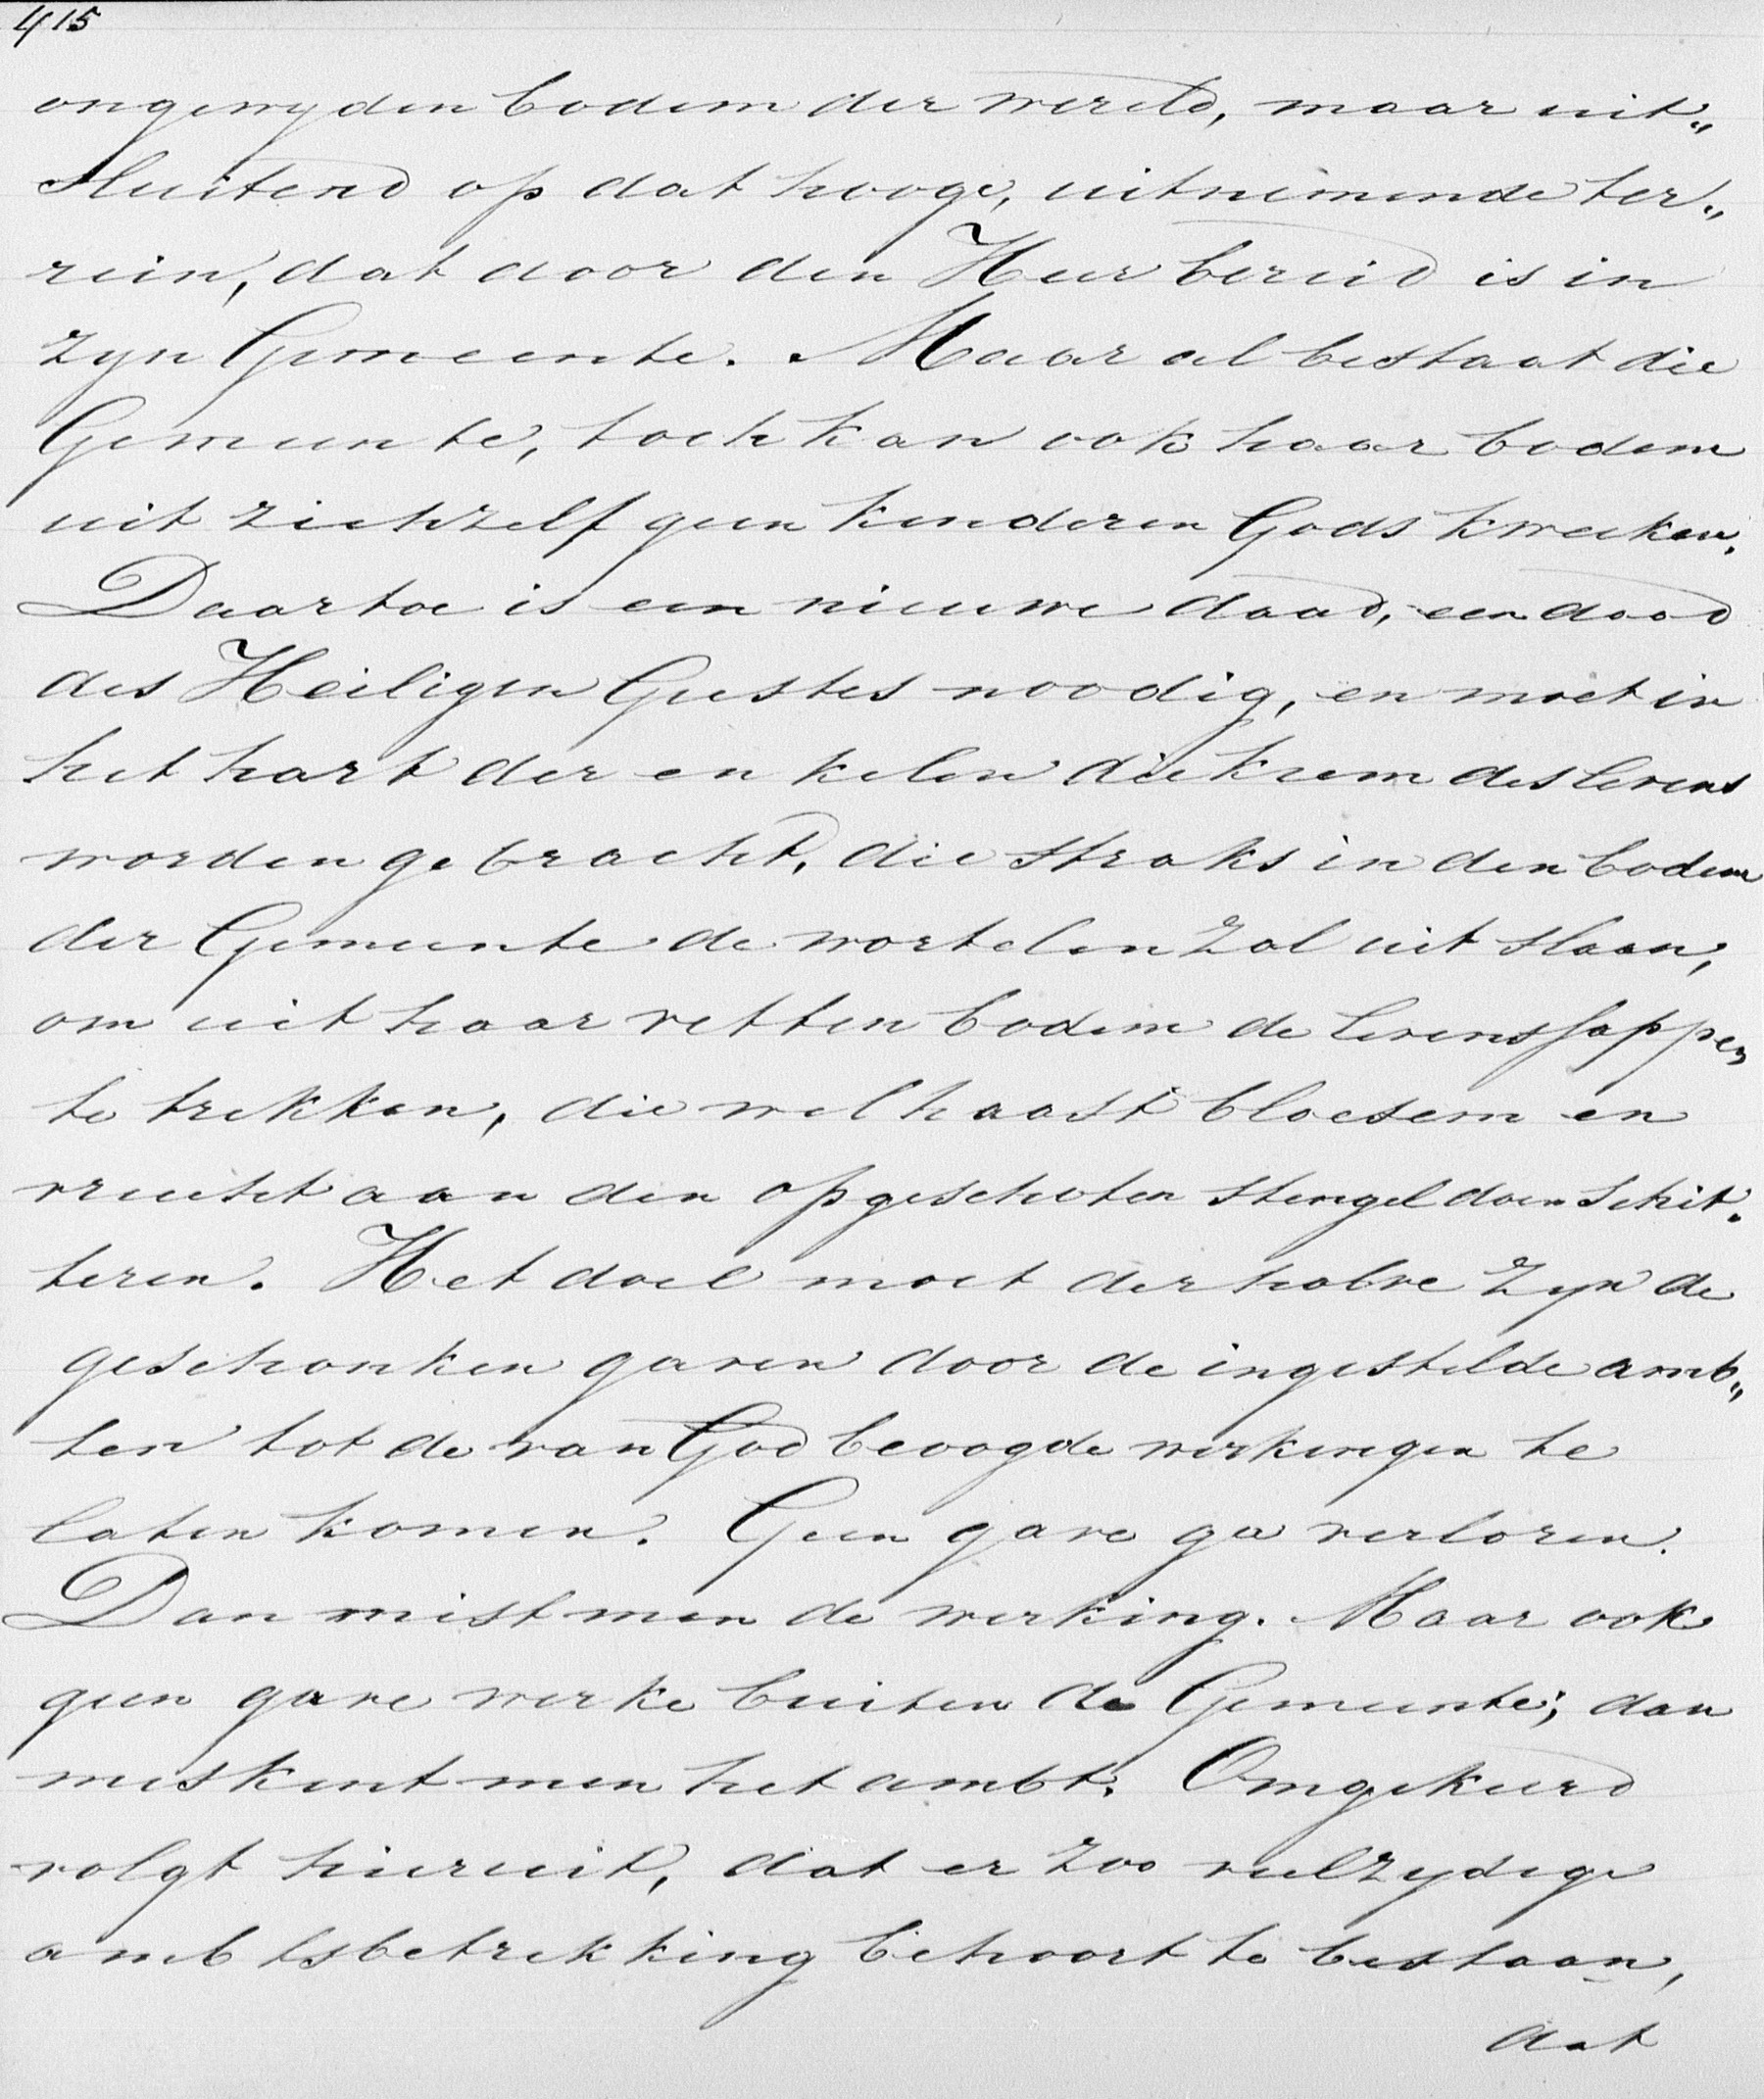 415
ongewyden bodem der wereld, maar uit„
sluitend op dat hooge, uitnemende ter„
rein, dat door den Heer bereid is in
zyn Gemeente. Maar al bestaat die
Gemeente, toch kan ook haar bodem
uit zichzelf geen kinderen Gods kweeken.
Daartoe is een nieuwe daad, een daad
des Heiligen Geestes noodig, en moet in
het hart der enkelen die kiem des levens
worden gebracht, die straks in den bodem
der Gemeente de wortelen zal uitslaan,
om uit haar vetten bodem de levenssappen
te trekken, die welhaast bloesem en
vrucht aan den opgeschoten stengel doen schit„
teren. Het doel moet derhalve zyn de
geschonken gaven door de ingestelde amb„
ten tot de van God beoogde werkingen te
laten komen. Geen gave ga verloren.
Dan mist men de werking. Maar ook
geen gave werke buiten de Gemeente; dan
miskent men het ambt. Omgekeerd
volgt hieruit, dat er zoo veelzydige
ambtsbetrekking behoort te bestaan,
dat